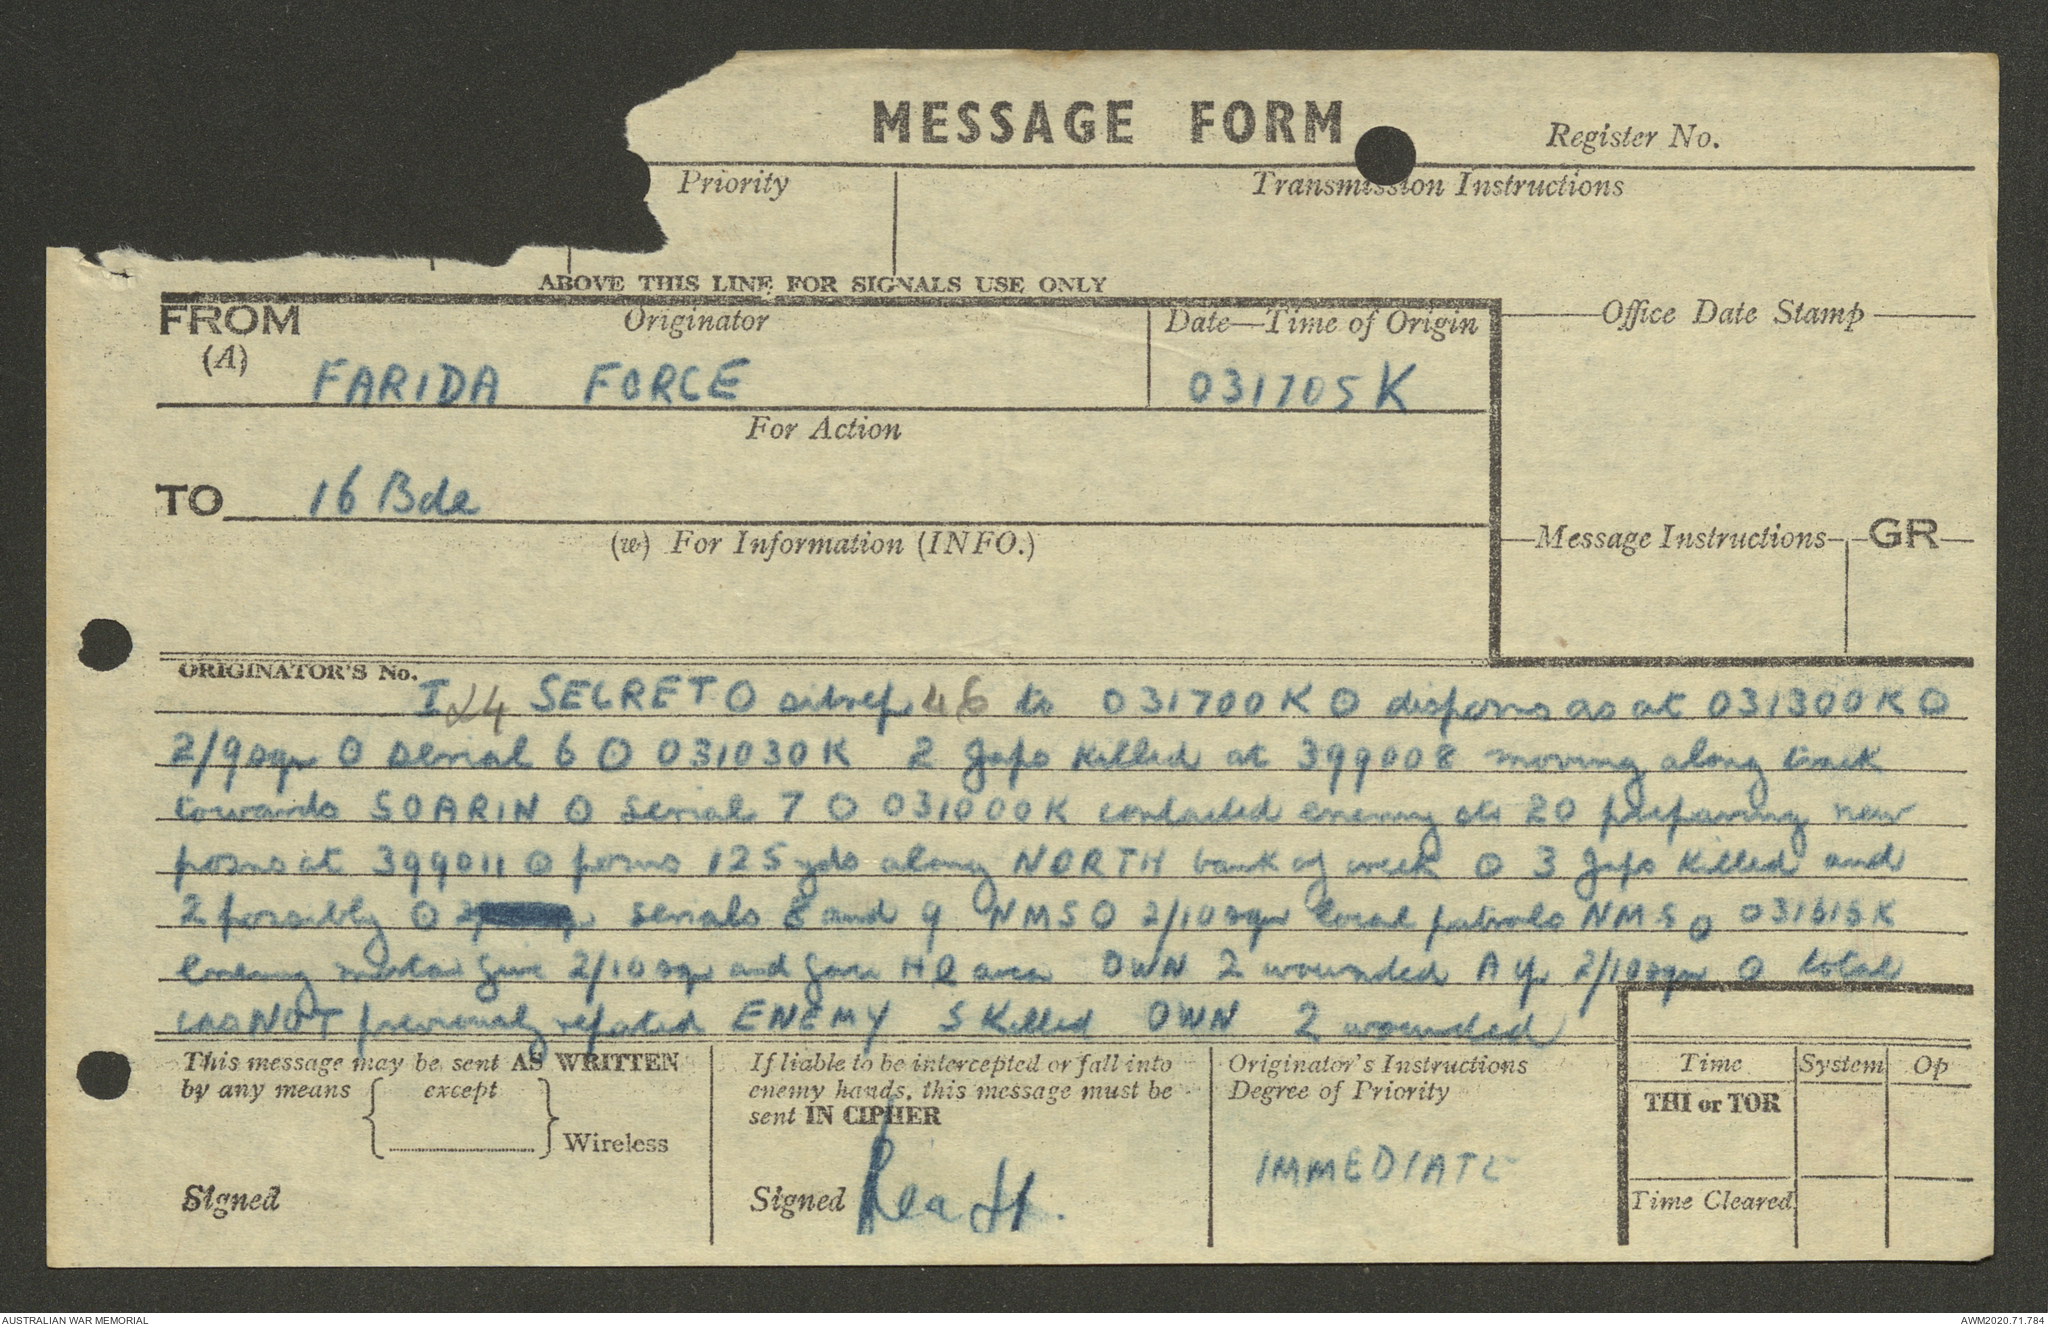 MESSAGE FORM
Register No.
Priority
Transmission Instructions
ABOVE THIS LINE FOR SIGNALS USE ONLY
FROM Originator Date—Time of Origin
Office Date Stamp
(A) FARIDA FORCE 031705K
For Action
TO 16 Bde
(w) For Information (INFO.)
Message Instructions GR
ORIGINATOR'S No.
I 24 SECRET O sitrep 46 to 031700K O disposns as at 031300K O
2/9 sqn O serial 6 O 031030K 2 Japs killed at 399008 moving along track
towards SOARIN O serial 7 O 031000K contacted enemy str 20 preparing new
posns at 399011 O posns 125 yds along NORTH bank of creek O 3 Japs killed and
2 possibly O serials 8 and 9 NMS O 2/10 sqn local patrols NMS O 031615K
enemy mortar 2/10 sqn and HQ area OWN 2 wounded A Tp 2/10 sqn O total
cas NOT previously reported ENEMY 5 killed OWN 2 wounded
This message may be sent AS WRITTEN
by any means except
Wireless
Signed
If liable to be intercepted or fall into
enemy hands, this message must be
sent IN CIPHER
Signed Rea Lt.
Originator's Instructions
Degree of Priority
IMMEDIATE
Time System Op
THI or TOR
Time Cleared
AUSTRALIAN WAR MEMORIAL
AWM2020.71.784